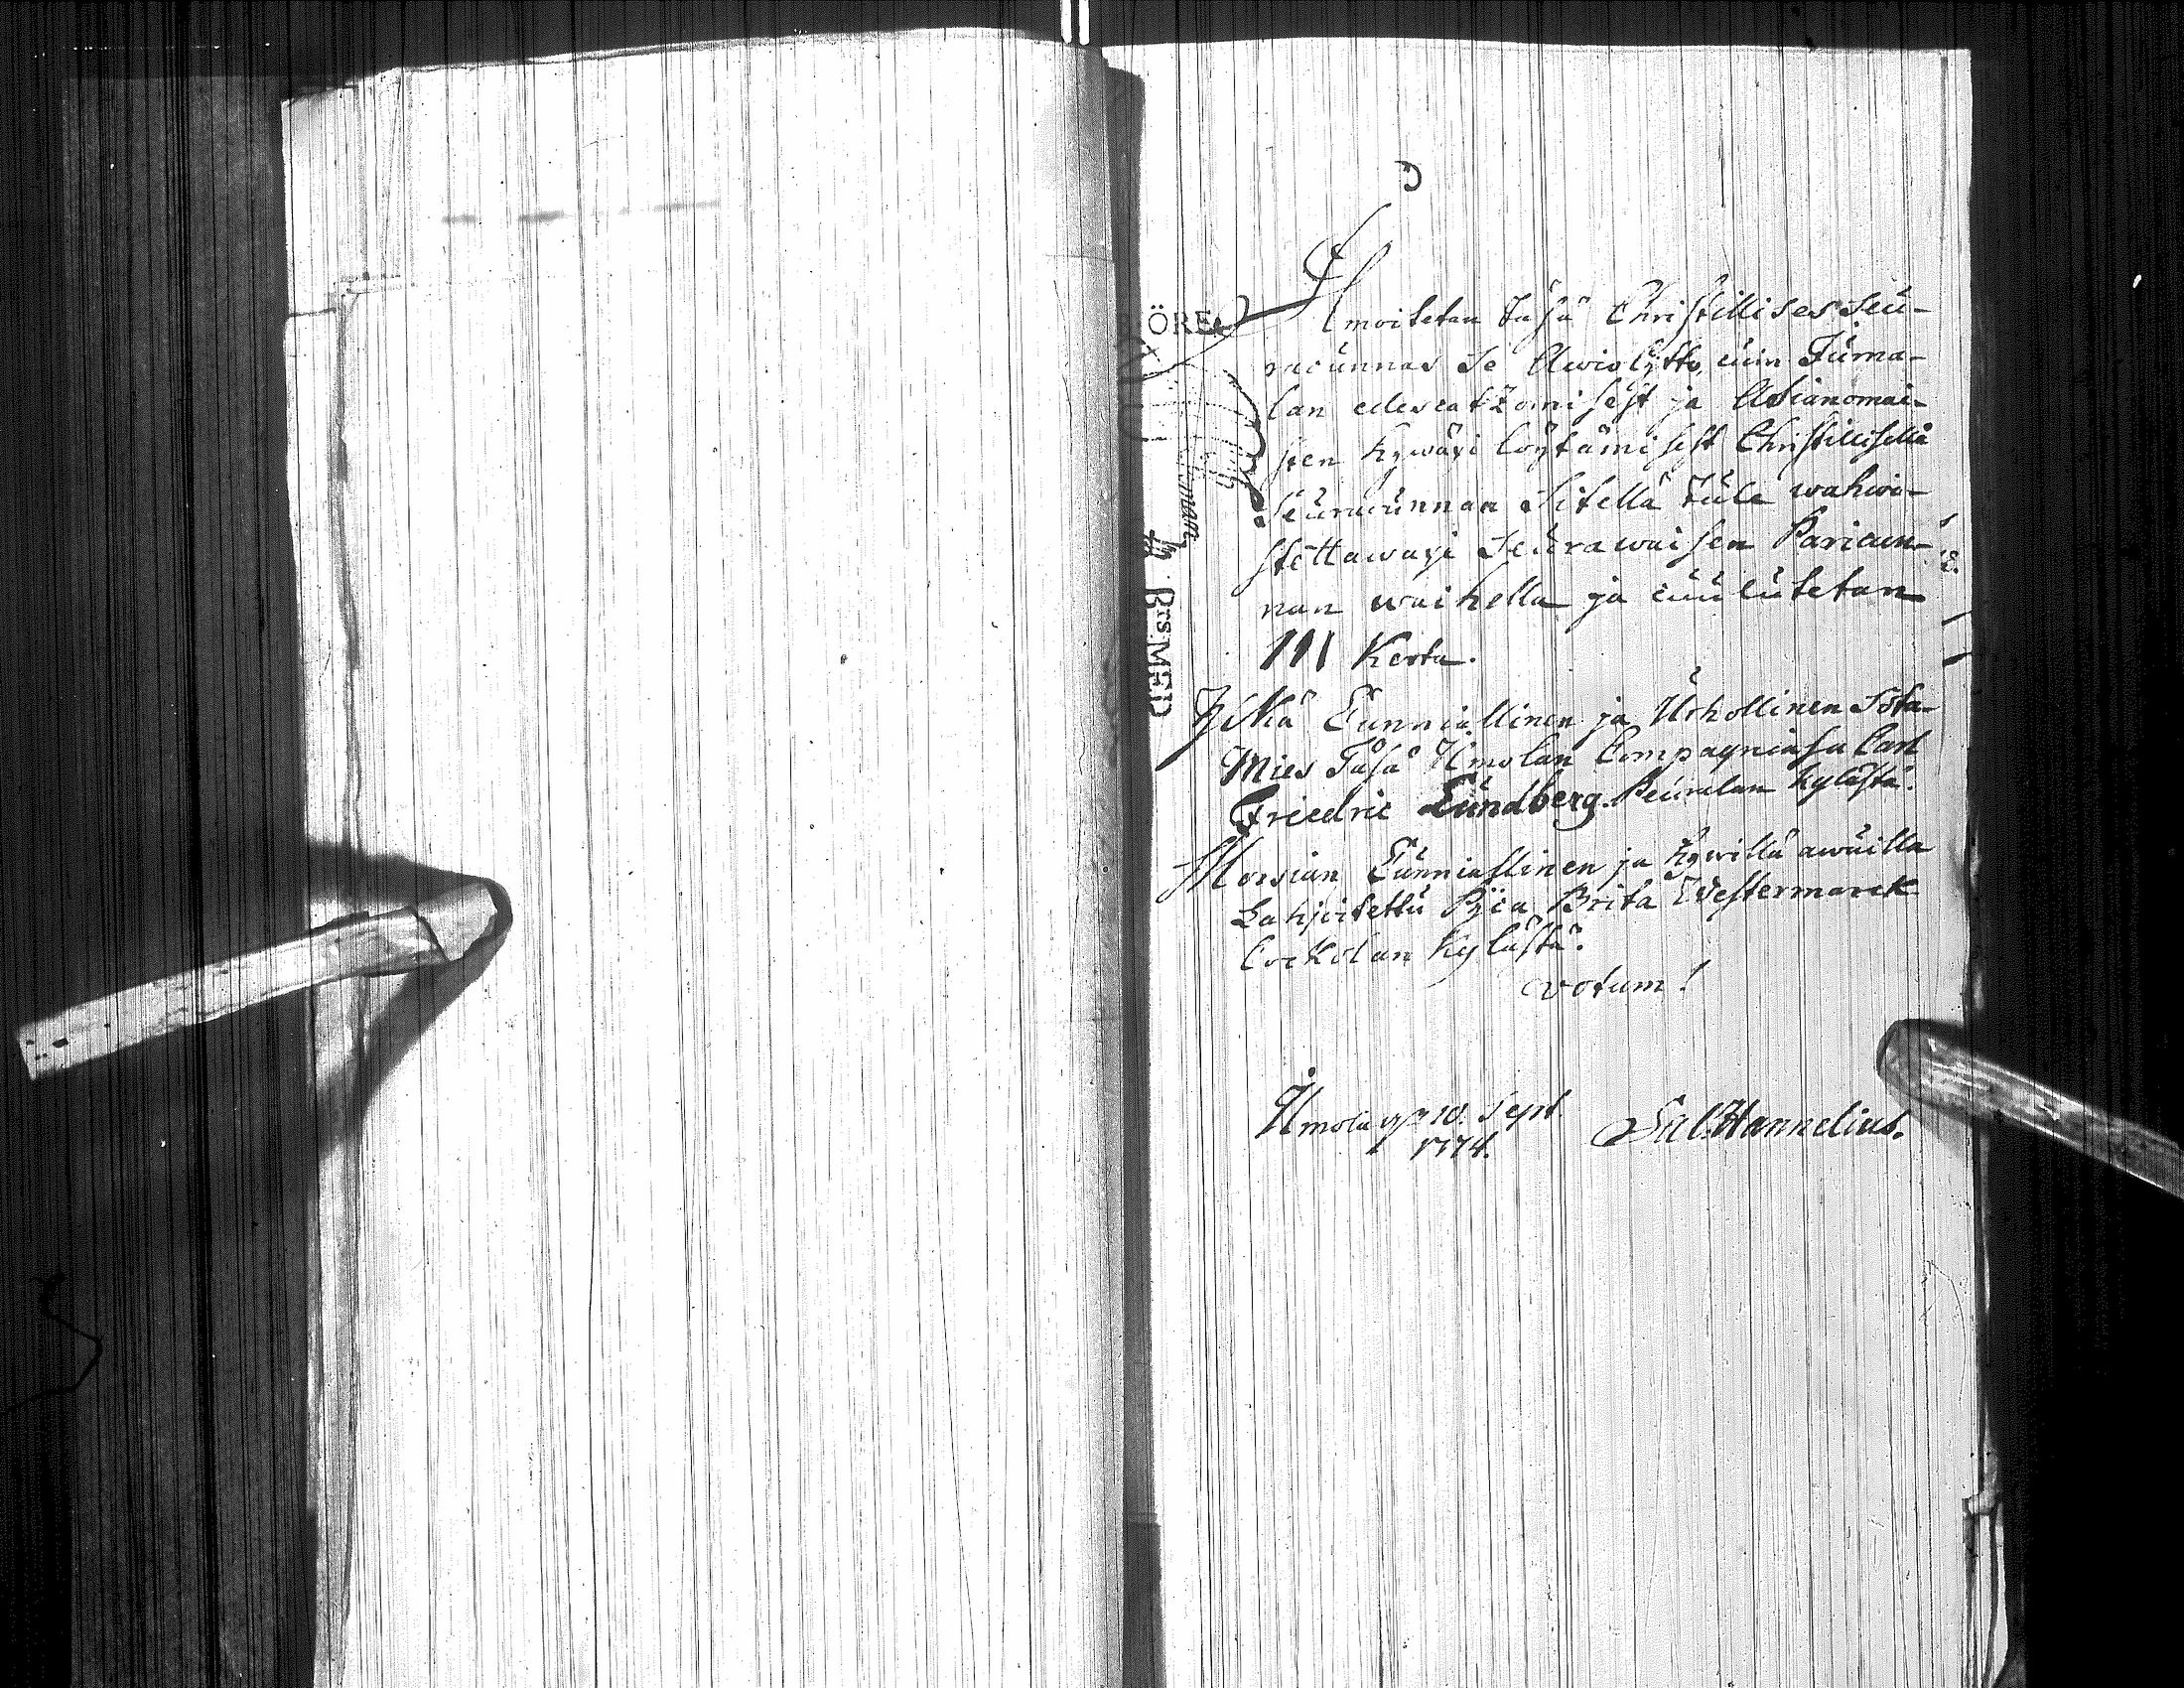 Ilmoitetan täsä Christillises Seu-
racunnas se Awioliitto, cuin Juma-
lan edescatzomisest ja Asianomai-
sten hywäxi löytämisest Christillisellä
Seuracunnan Sitellä tule wahwi-
stettawaxi Seurawaisen Paricun-
nan waihella ja cuulutetan
III Kerta.
Ylkä Cunniallinen ja Urhollinen Sota-
Mies Täsä Ilmolan Compagniasa Carl
Friedric Lundberg Peuralan kylästä.
Morsian Cunniallinen ja Hywillä awuilla
Lahjoitettu Pijca Brita Westermarck
Cockolan kylästä.
votum!
Ilmola 10. Sept
1774.
Sal. Hannelius.
ÖRE
Brs MEID